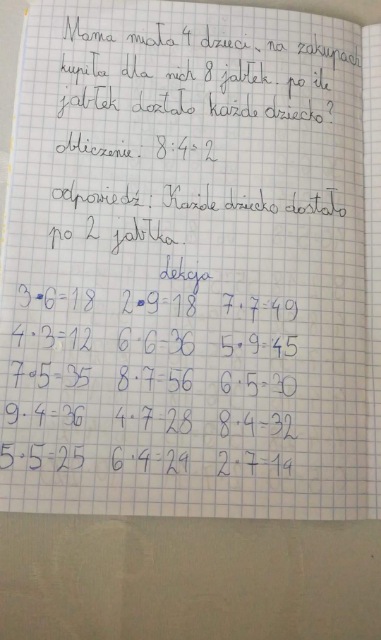 Mama miała 4 dzieci, na zakupach
kupiła dla nich 8 jabłek. po ile
jabłek dostało każde dziecko?
obliczenie: 8:4=2
odpowiedź: Każde dziecko dostało
po 2 jabłka.
Lekcja
3·6=18 2·9=18 7·7=49
4·3=12 6·6=36 5·9=45
7·5=35 8·7=56 6·5=30
9·4=36 4·7=28 8·4=32
5·5=25 6·4=24 2·7=14